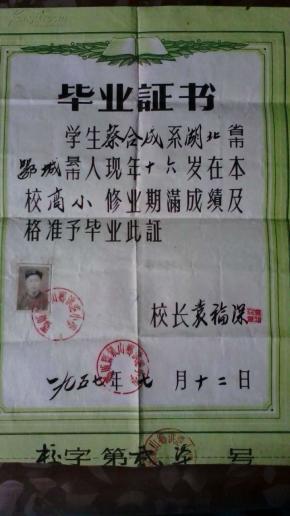 毕业証书
学生蔡合成系湖北省市
鄂城县市人现年十六岁在本
校高小修业期滿成績及
格准予毕业此証
校长袁福深
一九五七年七月十二日
校字第贰 号